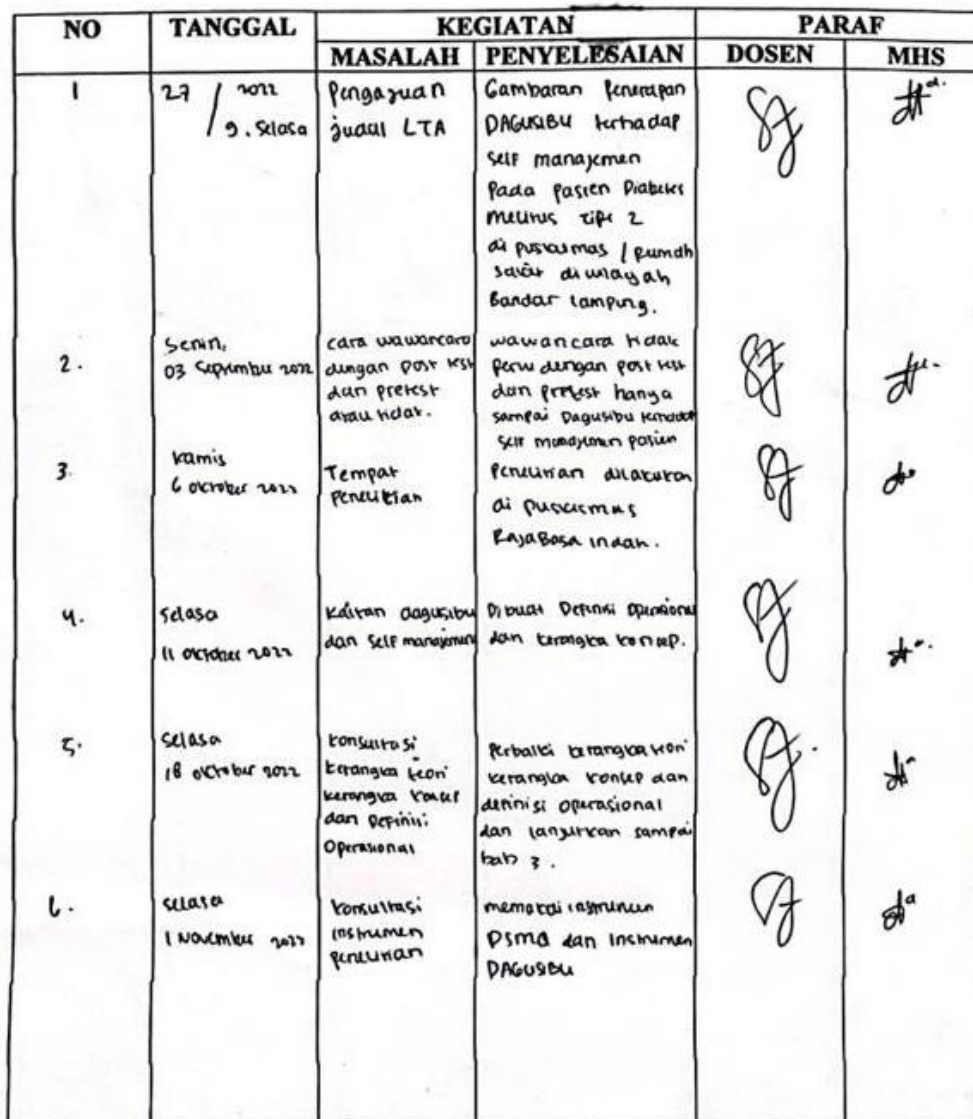 NO TANGGAL KEGIATAN PARAF
MASALAH PENYELESAIAN DOSEN MHS
1
27 / 2022
9. Selasa
Pengajuan
judul LTA
Gambaran Penerapan
DAGUSIBU terhadap
self manajemen
Pada pasien Diabetes
Melitus tipe 2
di puskesmas / Rumah
sakit di wilayah
Bandar Lampung.
2.
Senin,
03 September 2022
cara wawancara
dengan post test
dan pretest
atau tidak.
wawancara tidak
perlu dengan post test
dan pretest hanya
sampai Dagusibu terhadap
self manajemen pasien
3.
Kamis
6 oktober 2022
Tempat
Penelitian
Penelitian dilakukan
di puskesmas
RajaBasa indah.
4.
selasa
11 oktober 2022
Kaitan dagusibu
dan self manajemen
Dibuat Definisi Operasional
dan kerangka konsep.
5.
selasa
18 oktober 2022
konsultasi
kerangka teori
kerangka konsep
dan Definisi
Operasional
Perbaiki kerangka teori
kerangka konsep dan
definisi operasional
dan lanjutkan sampai
bab 3.
6.
selasa
1 November 2022
konsultasi
instrumen
penelitian
memakai instrumen
DSMQ dan instrumen
DAGUSIBU